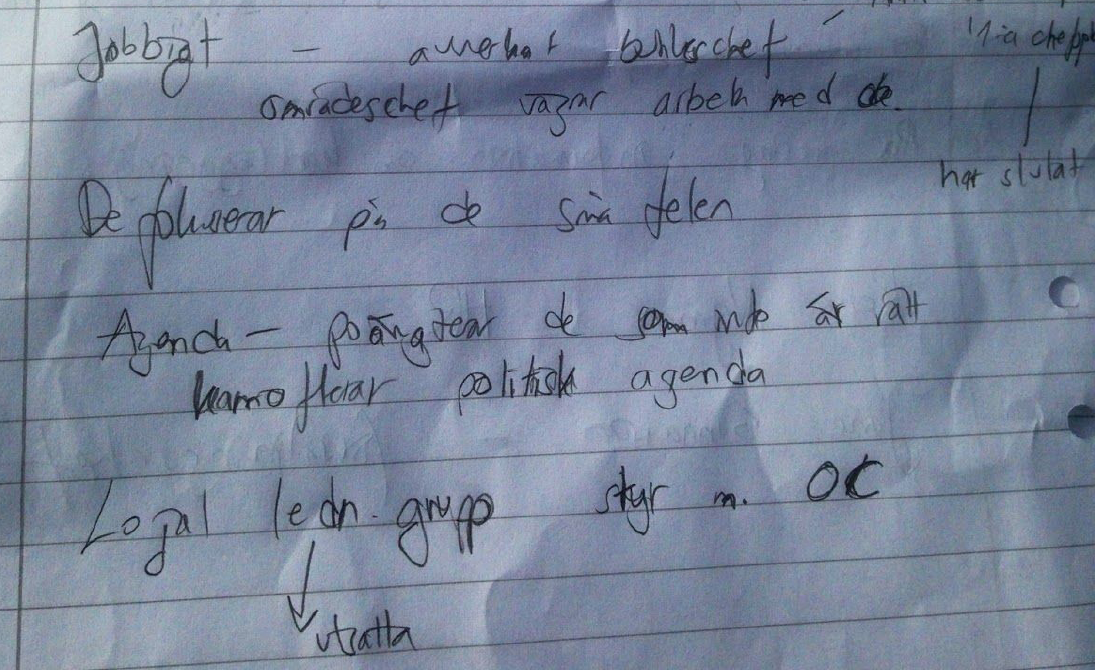 Jobbigt -
områdeschef vågar arbeta med de.
har slutat
De fokuserar på de små felen
Agenda - poängterar de som inte är rätt
kamoflerar politisk agenda
Lojal ledn. grupp styr m. OC
utsatta